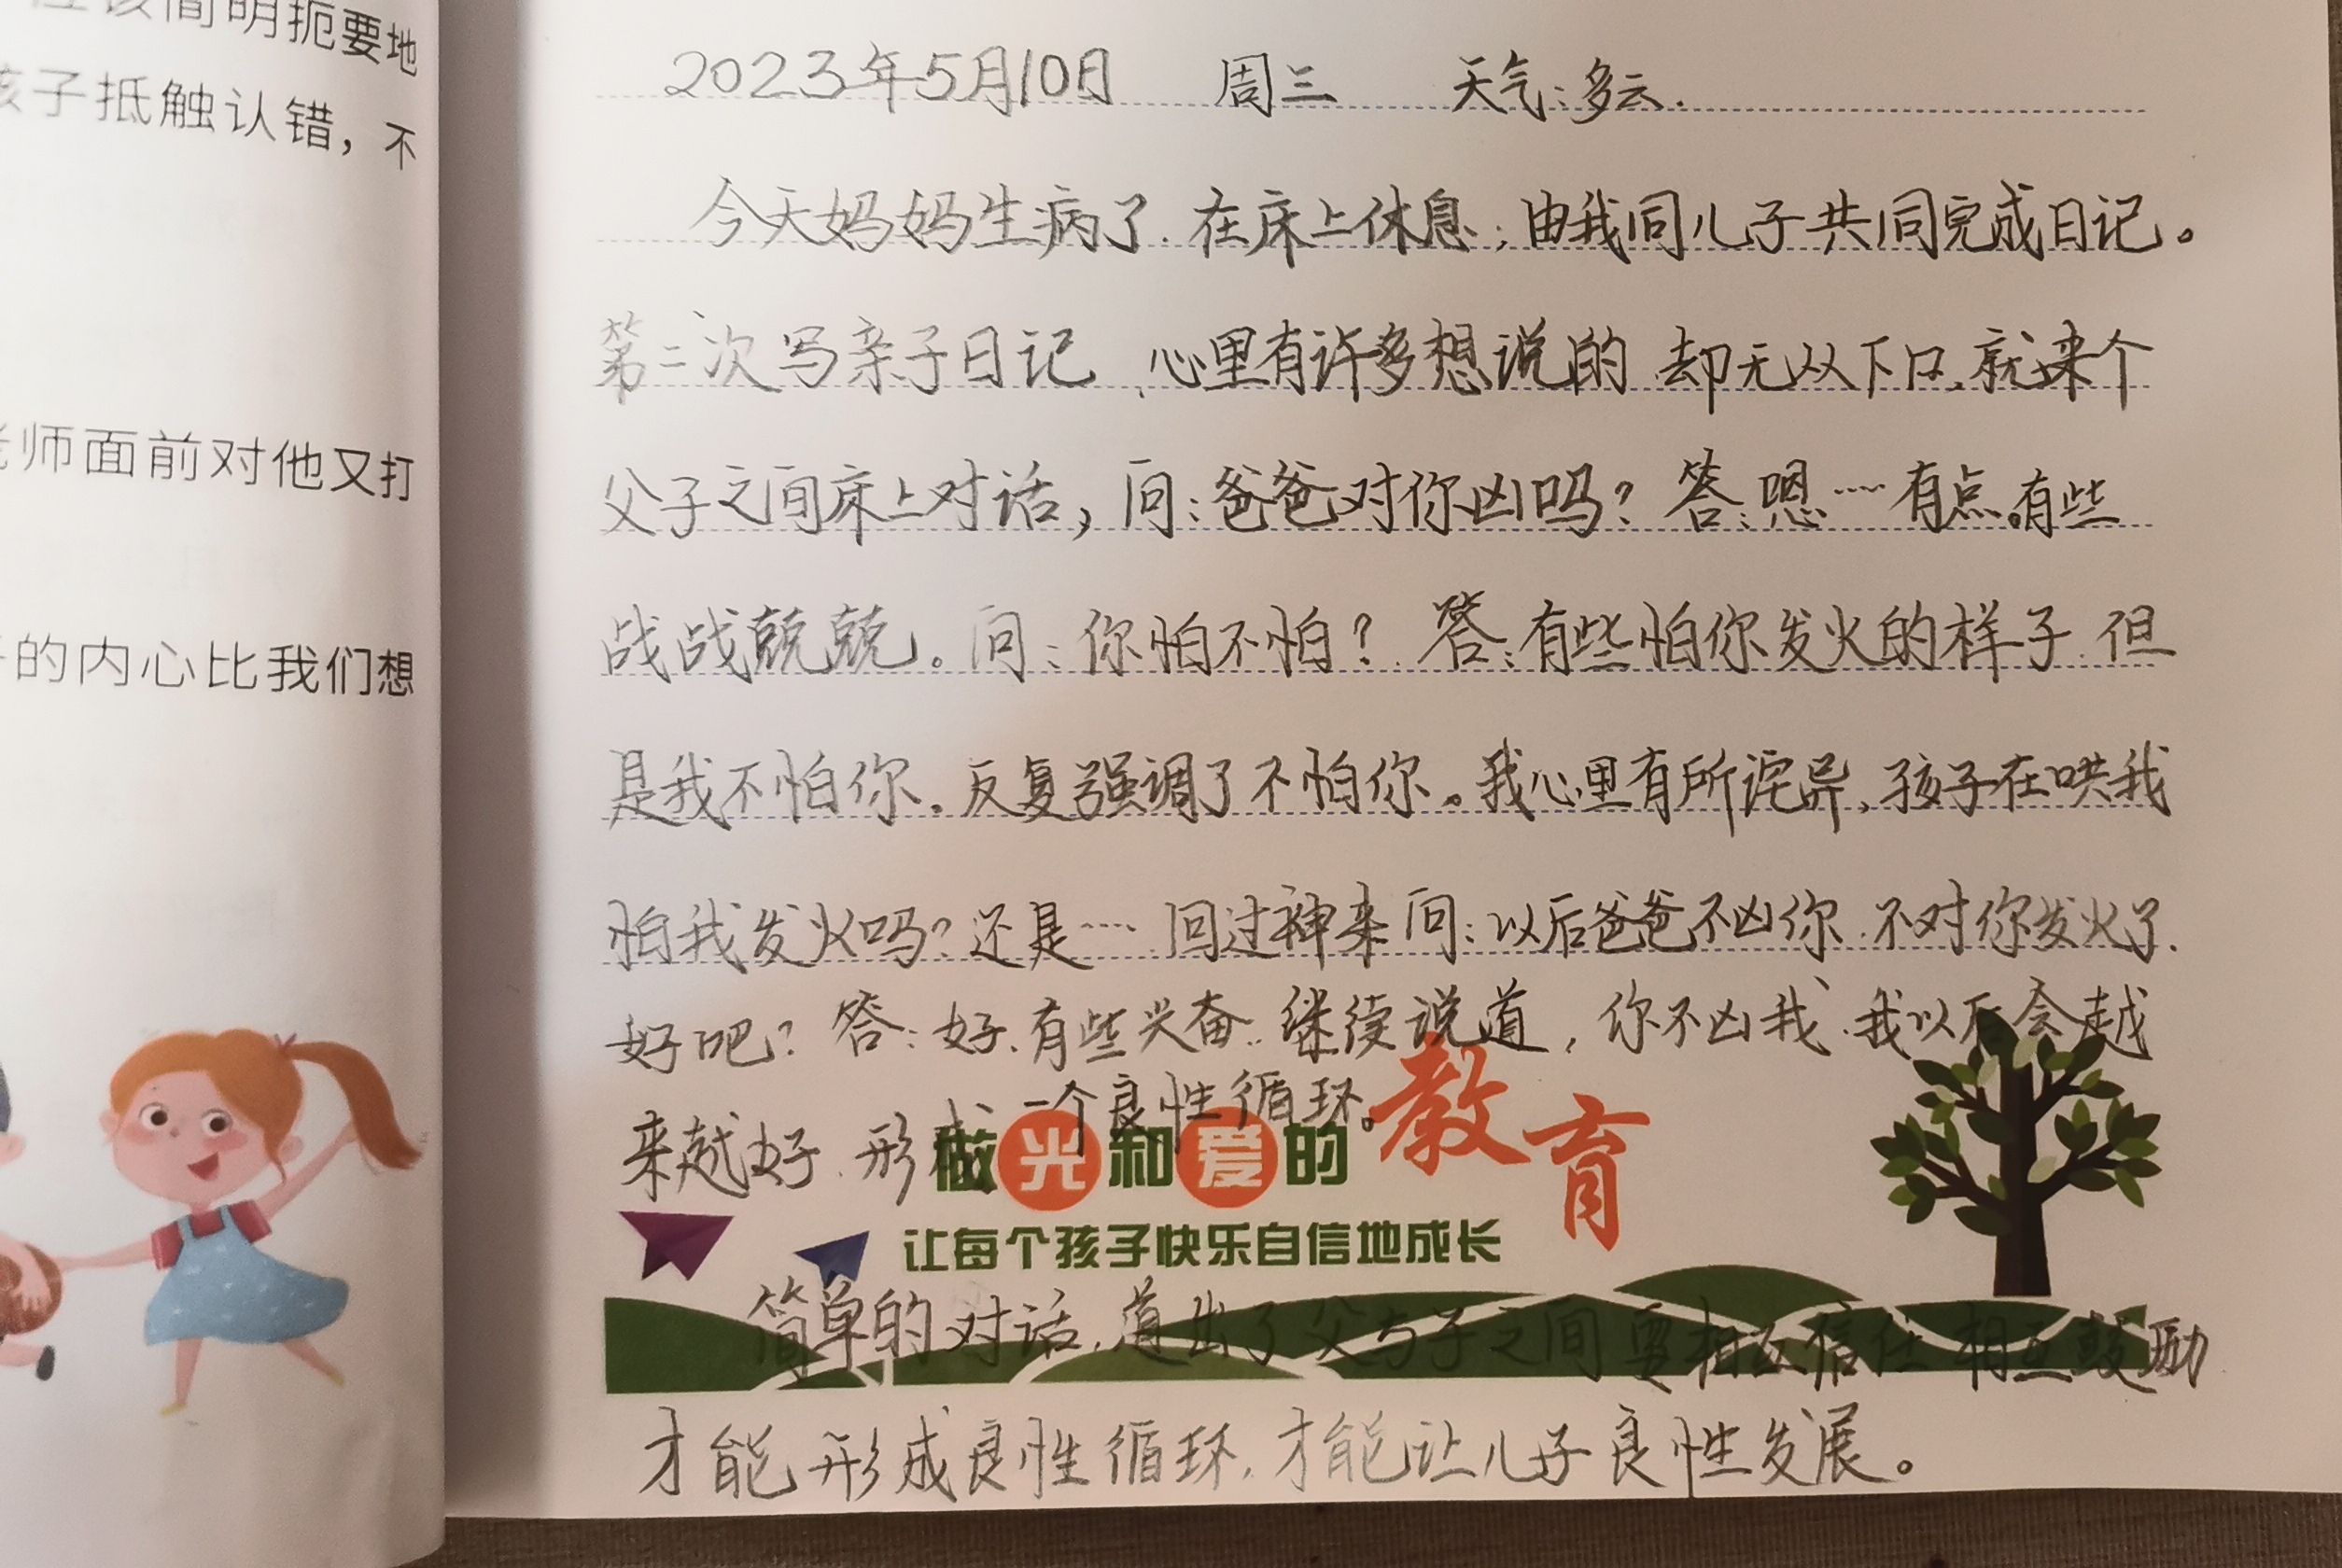 应该简明扼要地
孩子抵触认错，不
老师面前对他又打
子的内心比我们想
2023年5月10日 周三 天气：多云.
今天妈妈生病了.在床上休息;由我同儿子共同完成日记。
第二次写亲子日记、心里有许多想说的 却无从下口.就来个
父子之间床上对话，问：爸爸对你凶吗？答：嗯……有点。有些
战战兢兢。问：你怕不怕？答：有些怕你发火的样子.但
是我不怕你。反复强调了不怕你。我心里有所诧异，孩子在哄我
怕我发火吗？还是……回过神来问：以后爸爸不凶你.不对你发火了.
好吧？答：好.有些兴奋.继续说道，你不凶我.我以后会越
来越好.形成一个良性循环。
做光和爱的教育
让每个孩子快乐自信地成长
简单的对话，道出了父与子之间要相互信任 相互鼓励
才能形成良性循环，才能让儿子良性发展。